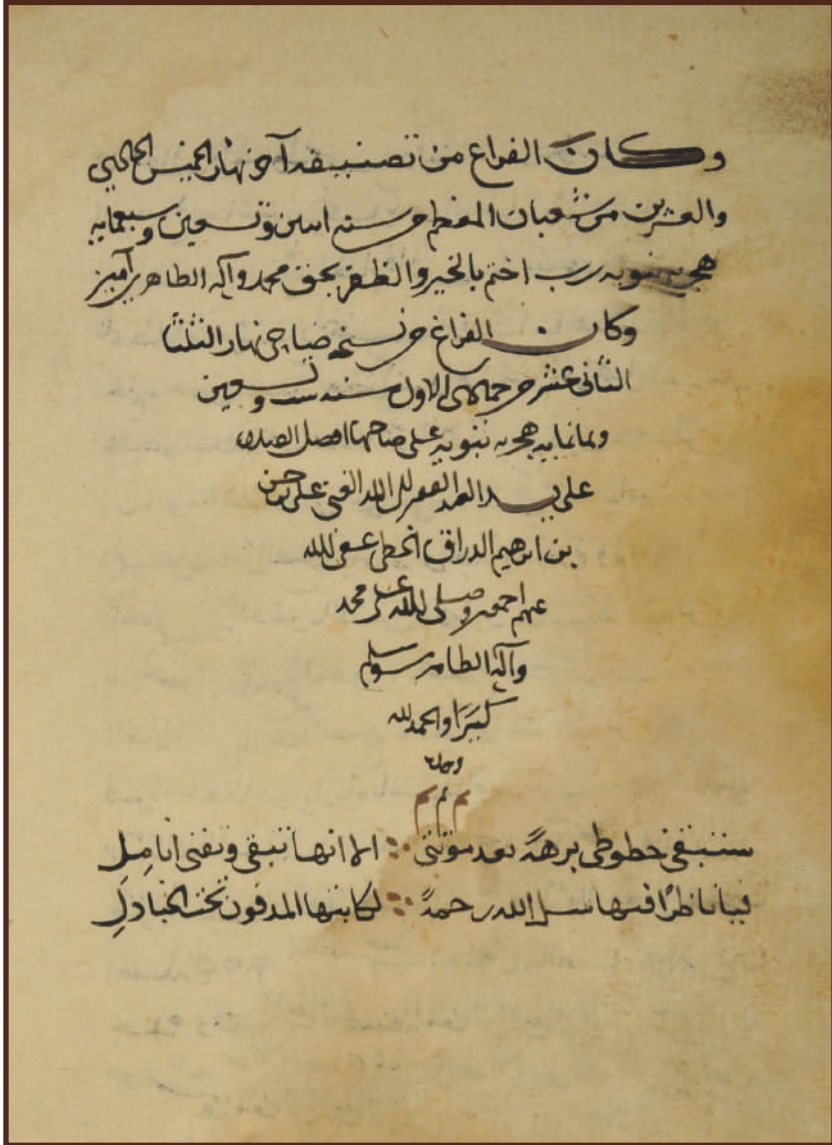 وكان الفراغ من تصنيفه آخر نهار الخميس الحادي
والعشرين من شعبان المعظم من سنه اسىن وتسعين وسبعمايه
هجريه نبويه رب اختم بالخير والظفر بحق محمد وآله الطاهرين آمين
وكان الفراغ من نسخه ضاحي نهار الثلثا
الثاني عشر من جمادى الاول سنه ست وتسعين
وثمانمايه هجريه نبويه على صاحبها افضل الصلاه
على يد العبد الفقير لله الغني علي بن حسن
بن ابرهيم عفى الله
عنهم اجمعين وصلى الله على محمد
وآله الطاهرين وسلم
كثيرًا والحمد لله
وحده
م م م
ستبقى خطوطي برهةً بعد موتتي ∴ الا انها تبقى وتفنى اناملِ
فيا ناظرًا فيها سل الله رحمةً ∴ لكاتبها المدفون تحت الجنادلِ